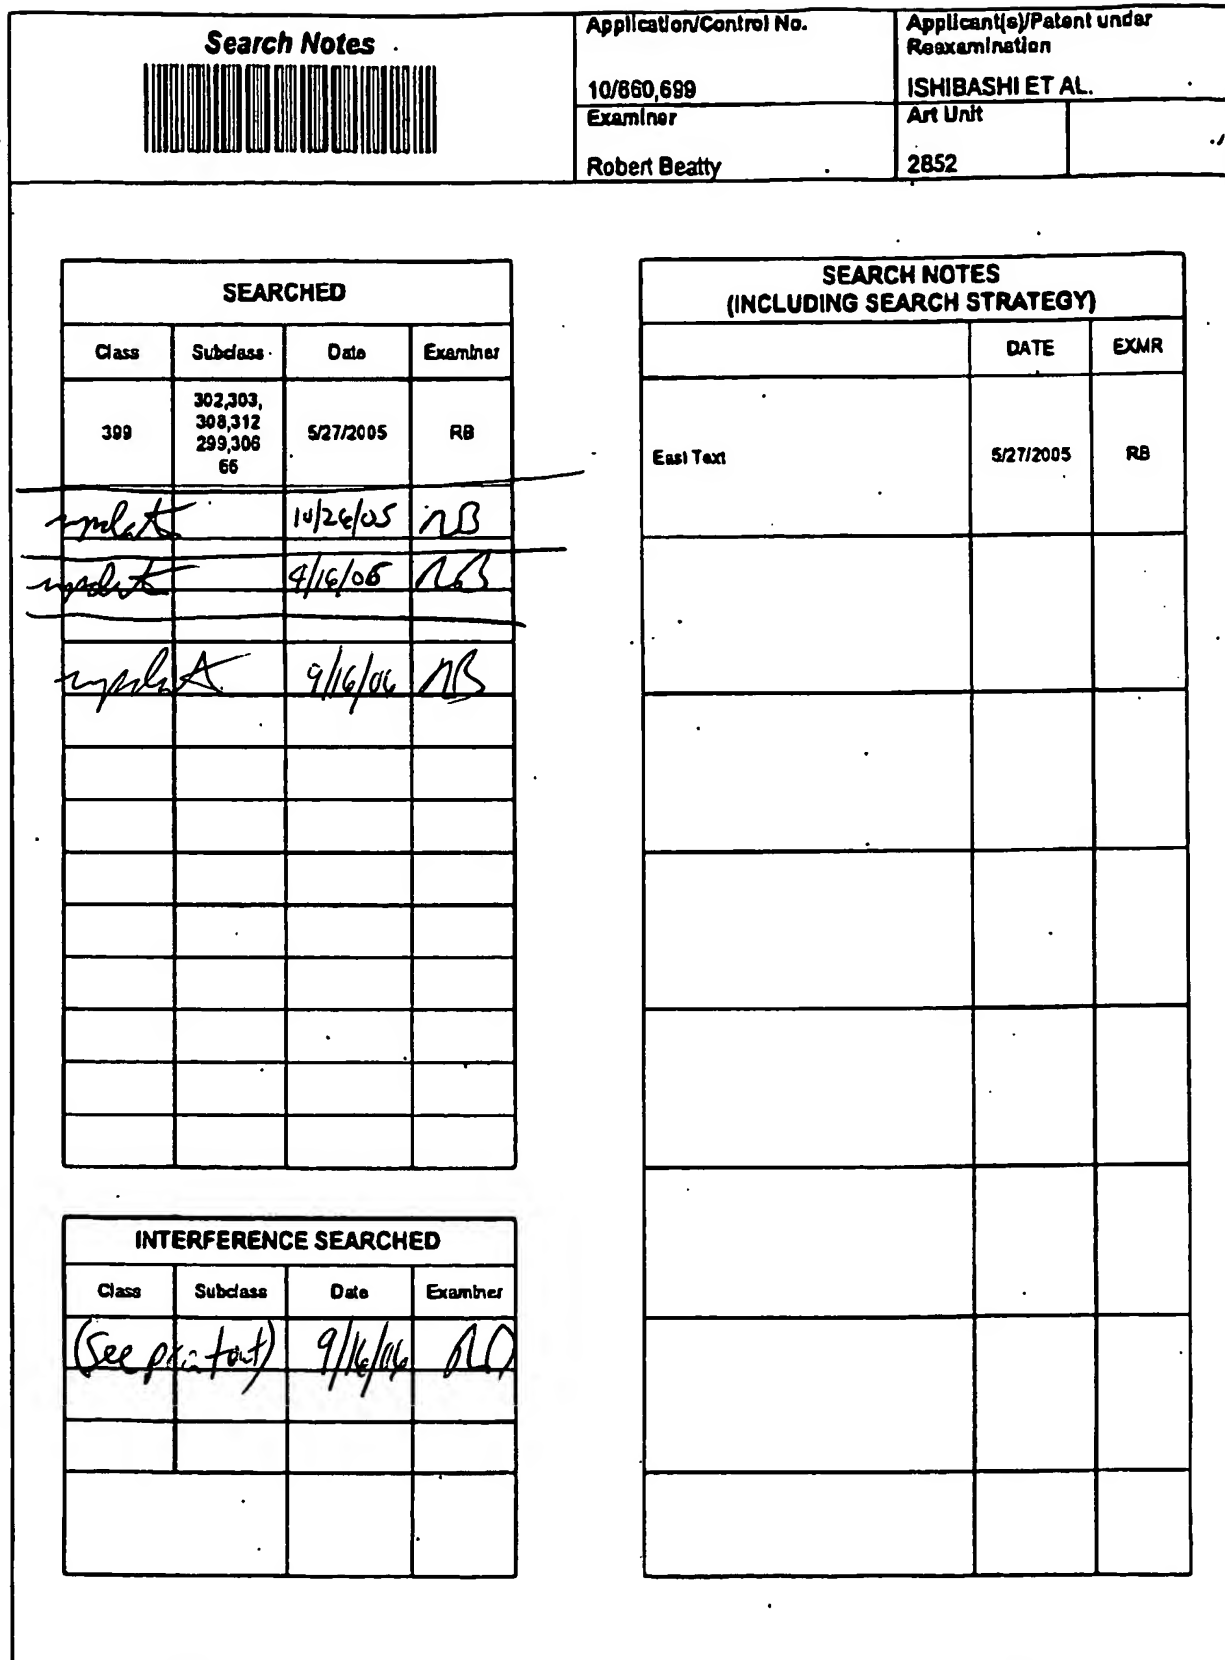 Search Notes
Application/Control No.
10/660,699
Applicant(s)/Patent under
Reexamination
ISHIBASHI ET AL.
Examiner
Robert Beatty
Art Unit
2852
SEARCHED
Class Subclass Date Examiner
399 302,303, 5/27/2005 RB
308,312
299,306
66
update 10/26/05 RB
update 4/16/06 RB
update 9/16/06 RB
INTERFERENCE SEARCHED
Class Subclass Date Examiner
(See printout) 9/16/06
SEARCH NOTES
(INCLUDING SEARCH STRATEGY)
DATE EXMR
East Text 5/27/2005 RB